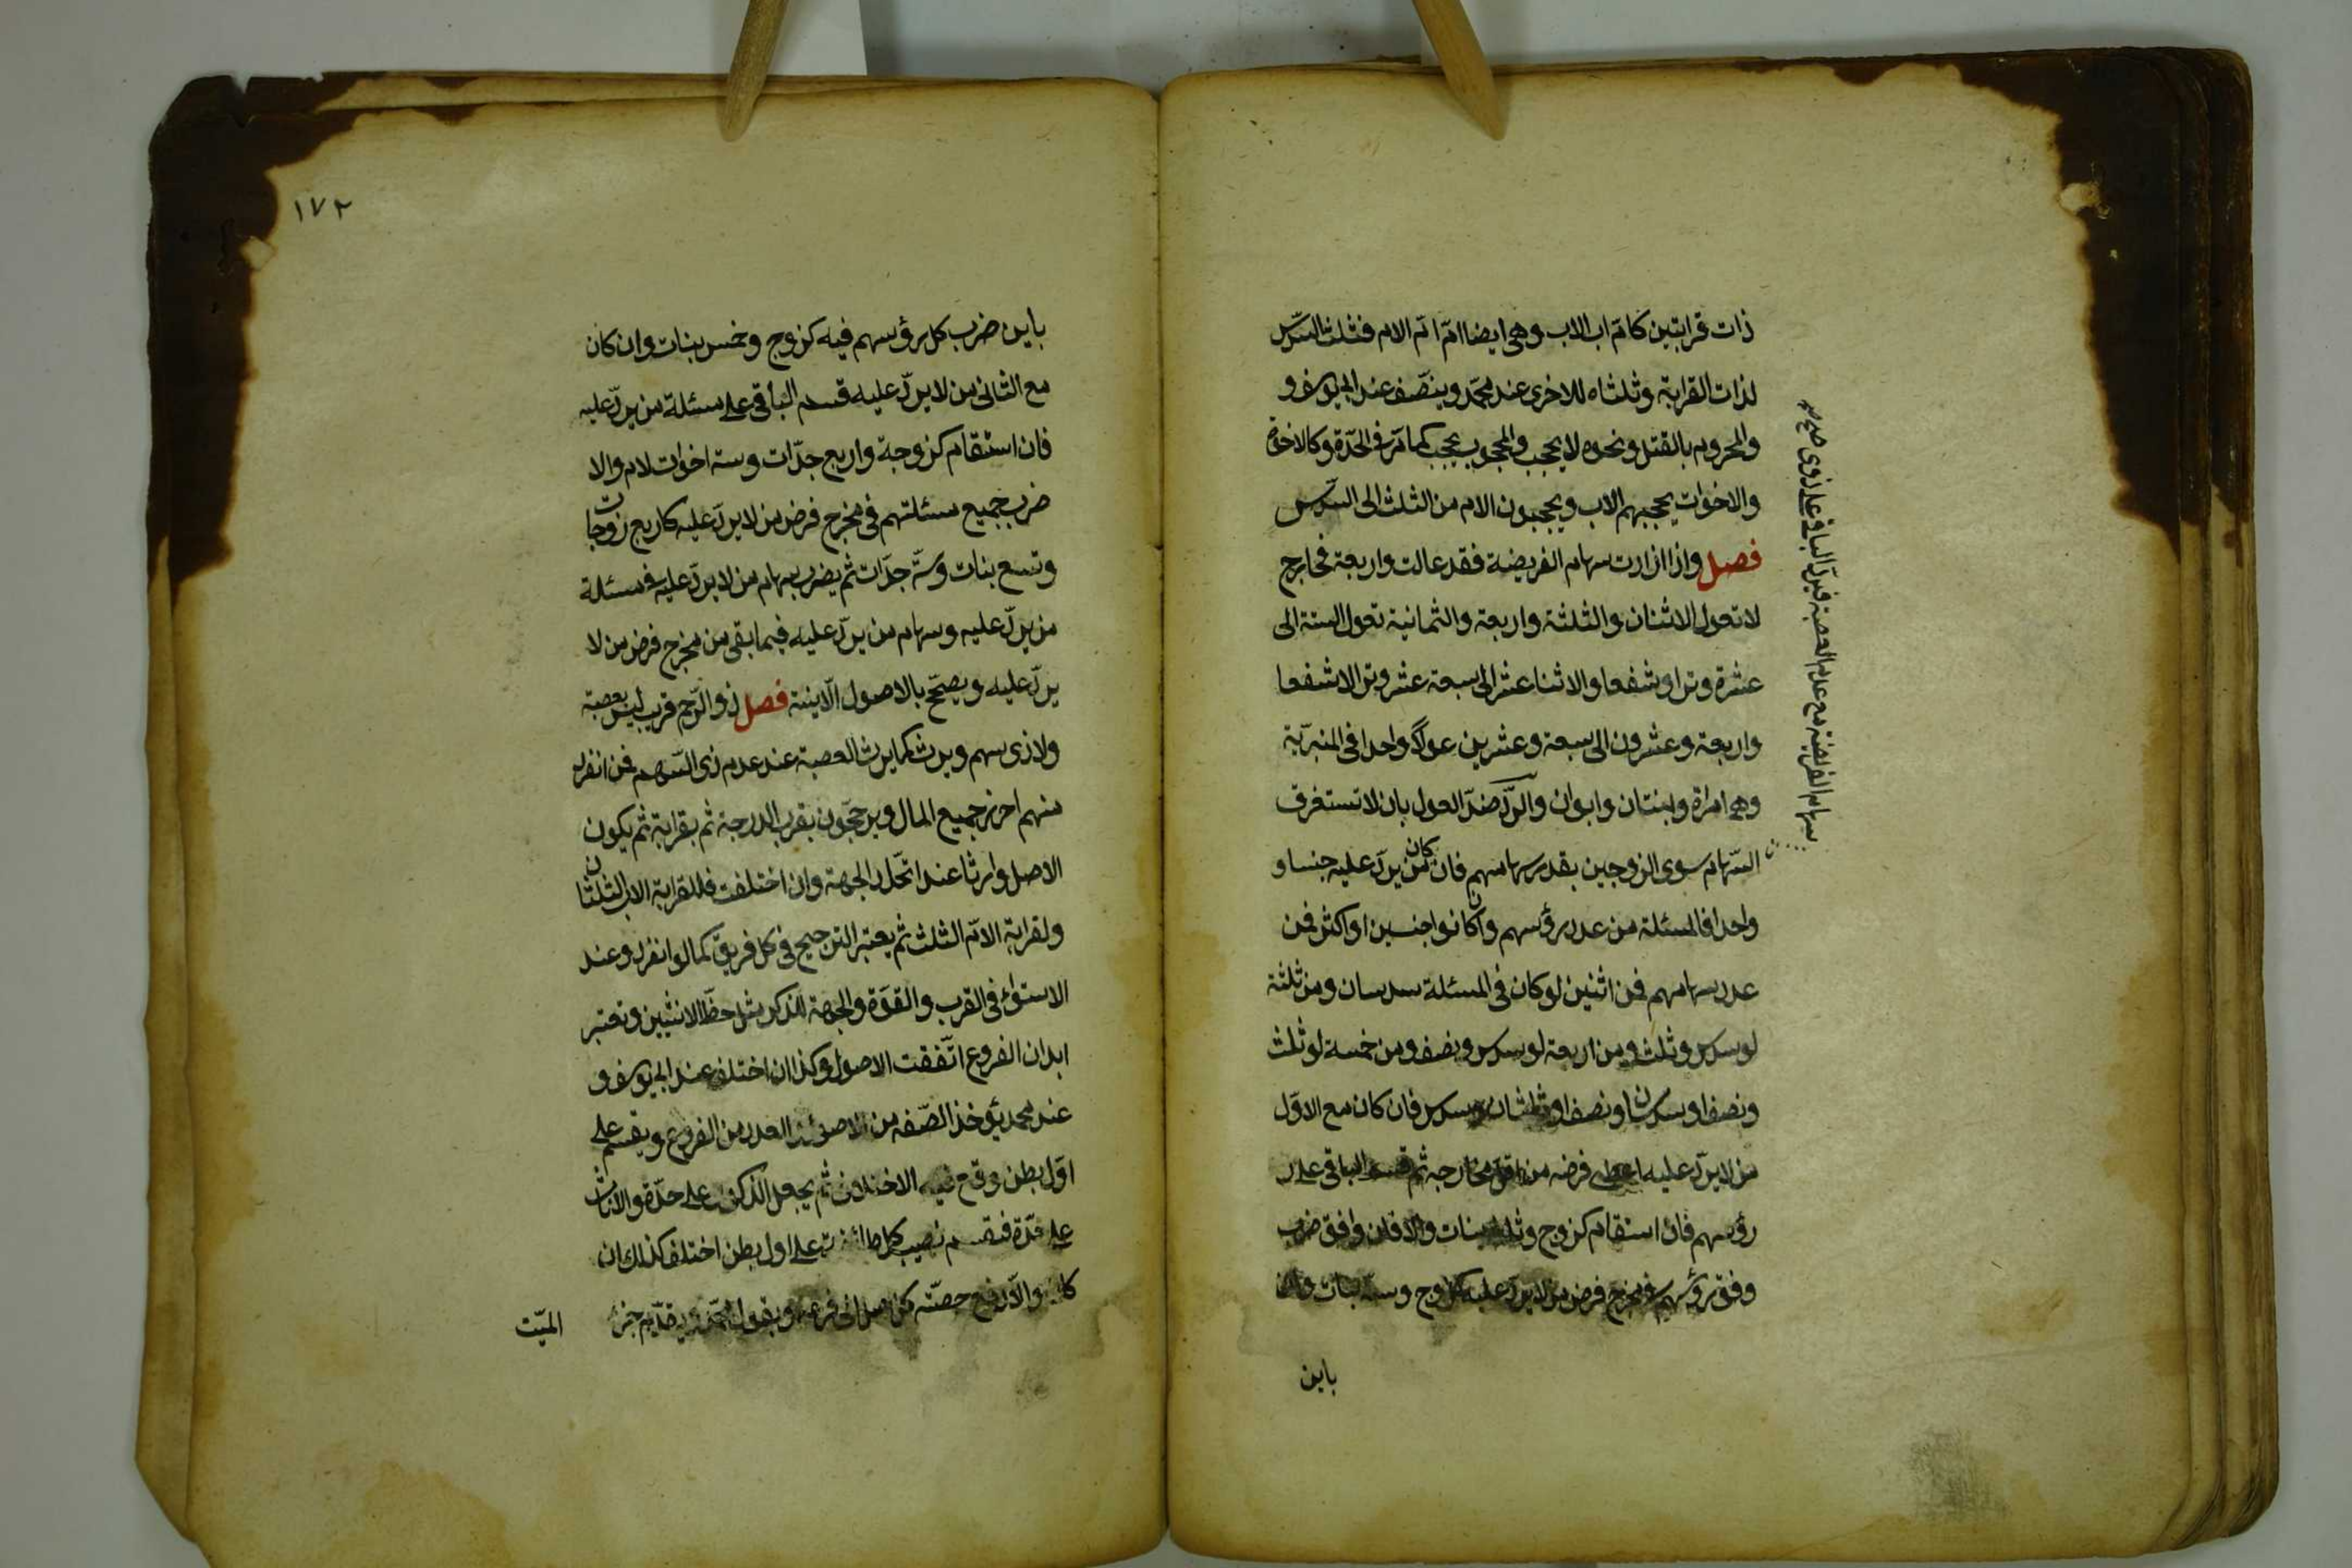 ذات قرابتين كامّ اب الاب وهى ايضا امّ امّ الام فثلث السّدس
لذات القرابة وثلثاه للاخرى عند محمّد وينصّف عند ابى يوسف و
والمحروم بالقتل ونحوه لا يحجب والمحجوب يحجب كما مرّ فى الجدّة وكالاخوة
والاخوات يحجبهم الاب ويحجبون الام من الثلث الى السّدس
فصل واذا ازادت سهام الفريضة فقد عالت واربعة مخارج
لا تعول الاثنان والثلثة واربعة والثمانية تعول الستة الى
عشرة وترا وشفعا والاثنا عشر الى سبعة عشر وترا لا شفعا
واربعة وعشرون الى سبعة وعشرين عولا واحدا فى المنبريّة
وهى امراة وبنتان وابوان والردّ ضدّ العول بان لا تستغرق
السّهام سوى الزوجين بقدر سهامهم فان كان من يردّ عليه جنسا و
واحدا فالمسئلة من عدد رؤسهم وان كانوا جنسين او اكثر فمن
عدد سهامهم فمن اثنين لو كان فى المسئلة سدسان ومن ثلثة
لو سدس وثلث ومن اربعة لو سدس ونصف ومن خمسة لو ثلث
ونصف او سدسان ونصف او ثلثان وسدس فان كان مع الاوّل
من لا يردّ عليه اعطى فرضه من اقل مخارجه ثم قسم الباقى على
رؤسهم فان استقام كزوج وثلث بنات والا فان وافق ضرب
وفق رؤسهم فى مخرج فرض من لا يردّ عليه كزوج وستّ بنات وان
باين
سهام الفريضة مع عدم العصبة فيردّ الباقى على ذوى صح
١٧٢
باين ضرب كل رؤسهم فيه كزوج وخمس بنات وان كان
مع الثانى من لا يردّ عليه قسم الباقى على مسئلة من يردّ عليه
فان استقام كزوجة واربع جدّات وستة اخوات لام والا
ضرب جميع مسئلتهم فى مخرج فرض من لا يردّ عليه كاربع زوجات
وتسع بنات وستّ جدّات ثم يضرب سهام من لا يردّ عليه فى مسئلة
من يردّ عليه وسهام من يردّ عليه فيما بقى من مخرج فرض من لا
يردّ عليه ويصحّ بالاصول الآتية فصل ذو الرّحم قريب ليس بعصبة
ولا ذى سهم ويرث كما يرث العصبة عند عدم ذى السّهم فمن انفرد
منهم احرز جميع المال ويرجّحون بقرب الدرجة ثم بقرابة ثم يكون
الاصل وارثا عند اتّحاد الجهة وان اختلفت فللقرابة الاب الثلثان
ولقرابة الامّ الثلث ثم يعتبر الترجيح فى كل فريق كما لو انفرد وعند
الاستواء فى القرب والقوّة والجهة للذكر مثل حظّ الانثيين وتعتبر
ابدان الفروع اتّفقت الاصول وكذا ان اختلف عند ابى يوسف و
عند محمد يؤخذ الصّفة من الاصول والعدد من الفروع ويقسم على
اوّل بطن وقع فيه الاختلاف ثم يجعل الذكور على حدّة والاناث
على حدّة فتقسم نصيب كل طائفة على اول بطن اختلف كذلك ان
كان والّا دفع حصّته كل اصل الى فرعه وبقول محمّد يقدّم جزء
الميّت